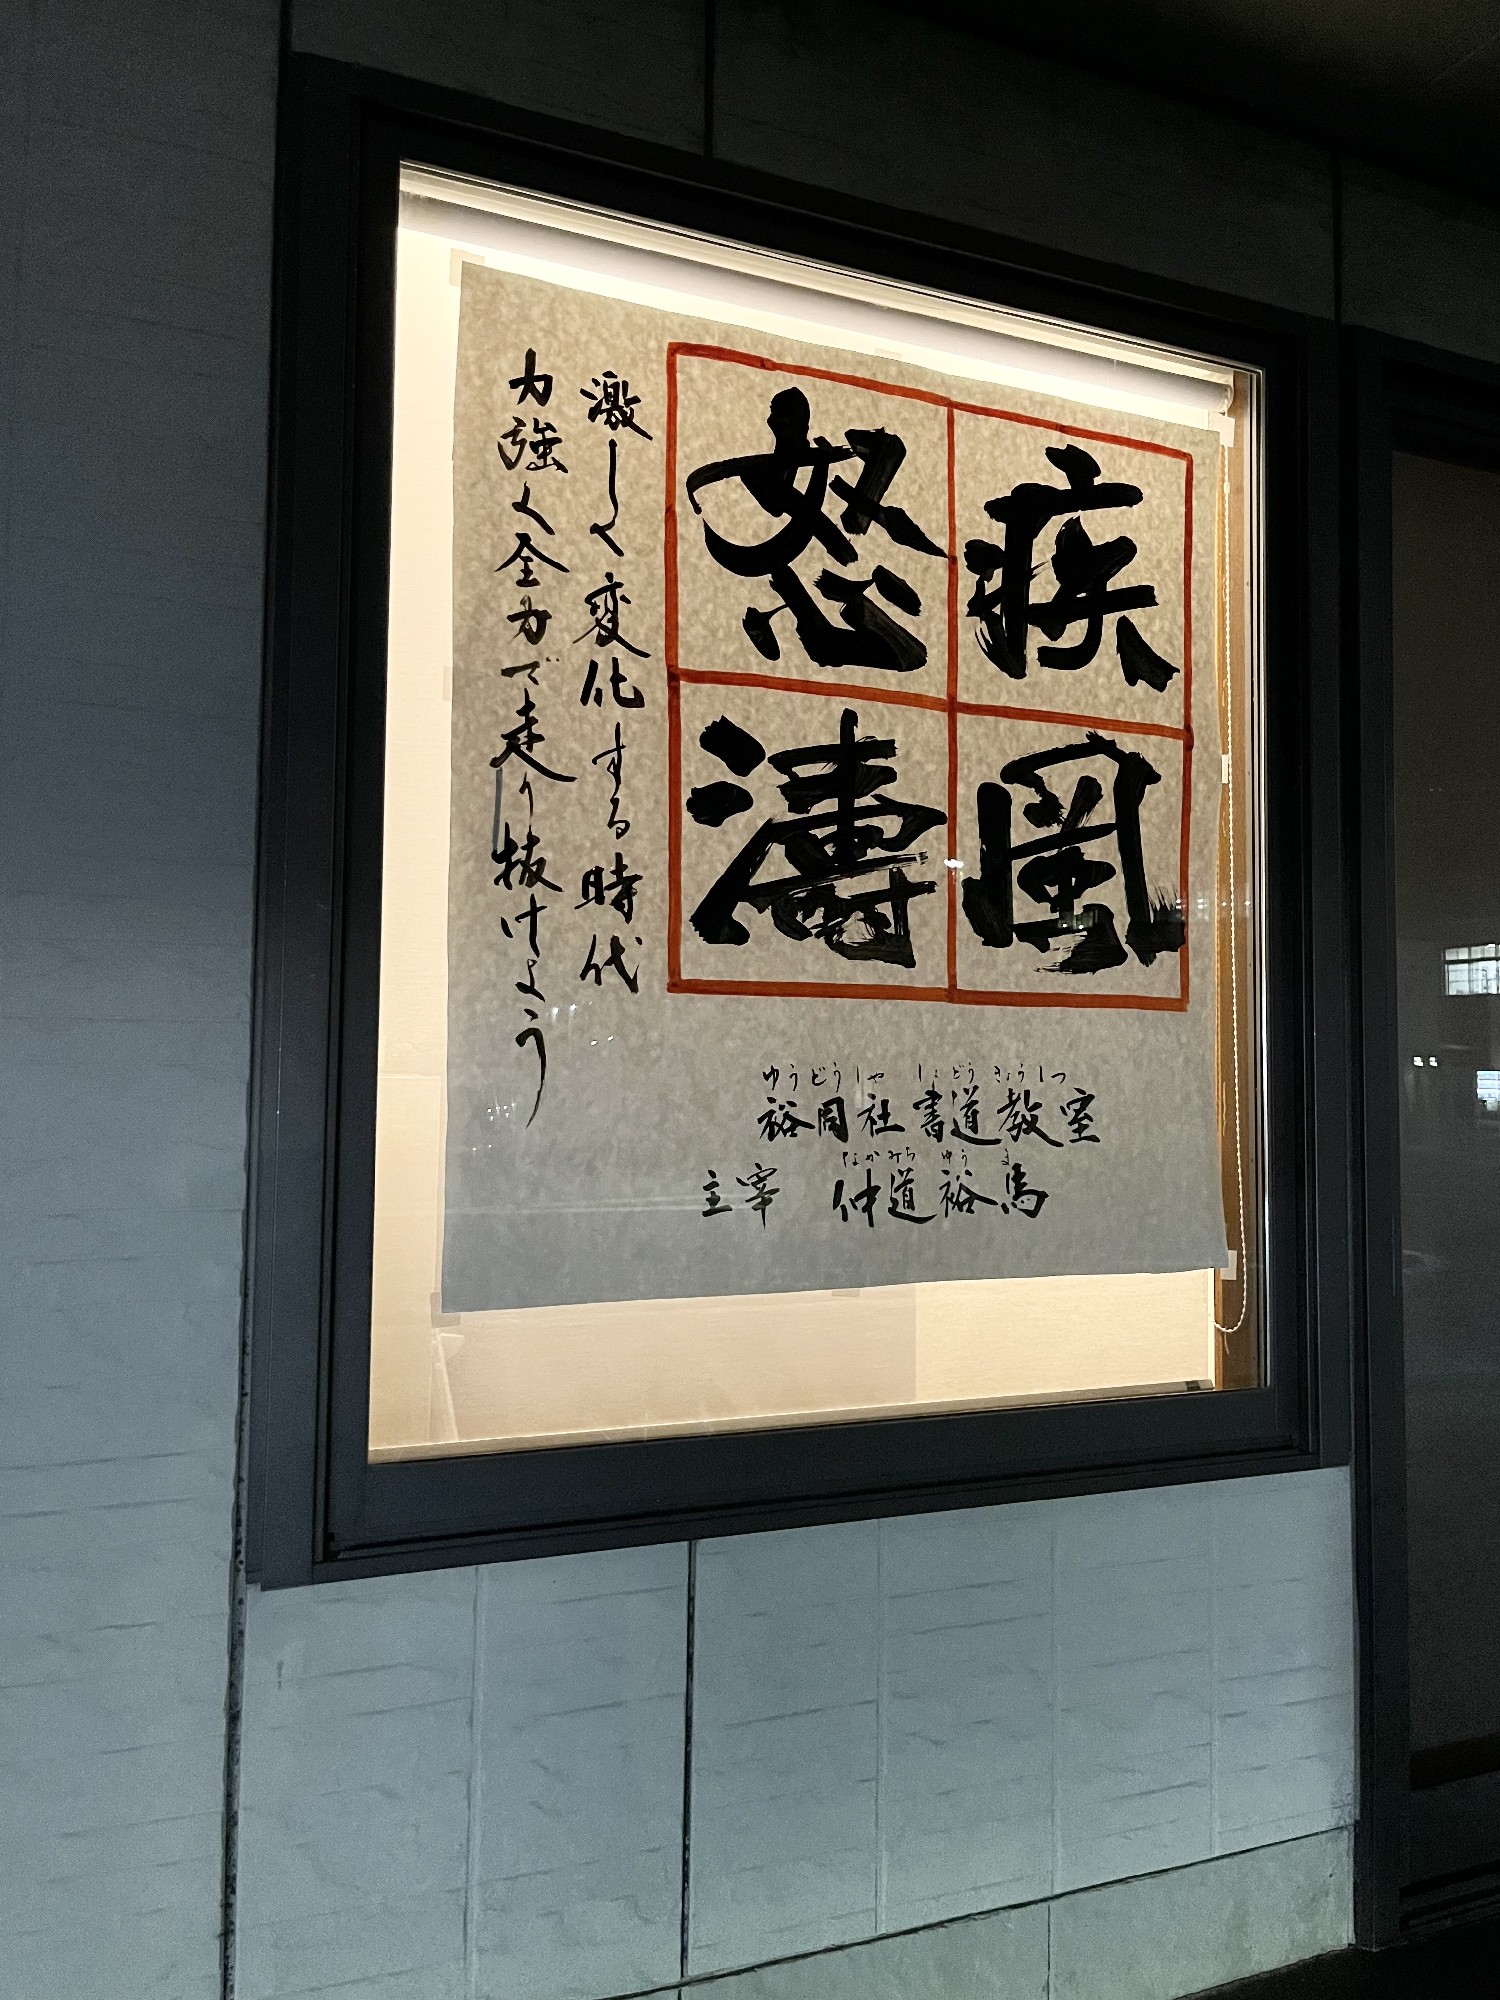 疾風
怒濤
激しく変化する時代
力強く全力で走り抜けよう
ゆうどうしゃ しょどうきょうしつ
裕同社書道教室
なかみち ゆうま
主宰 仲道裕馬